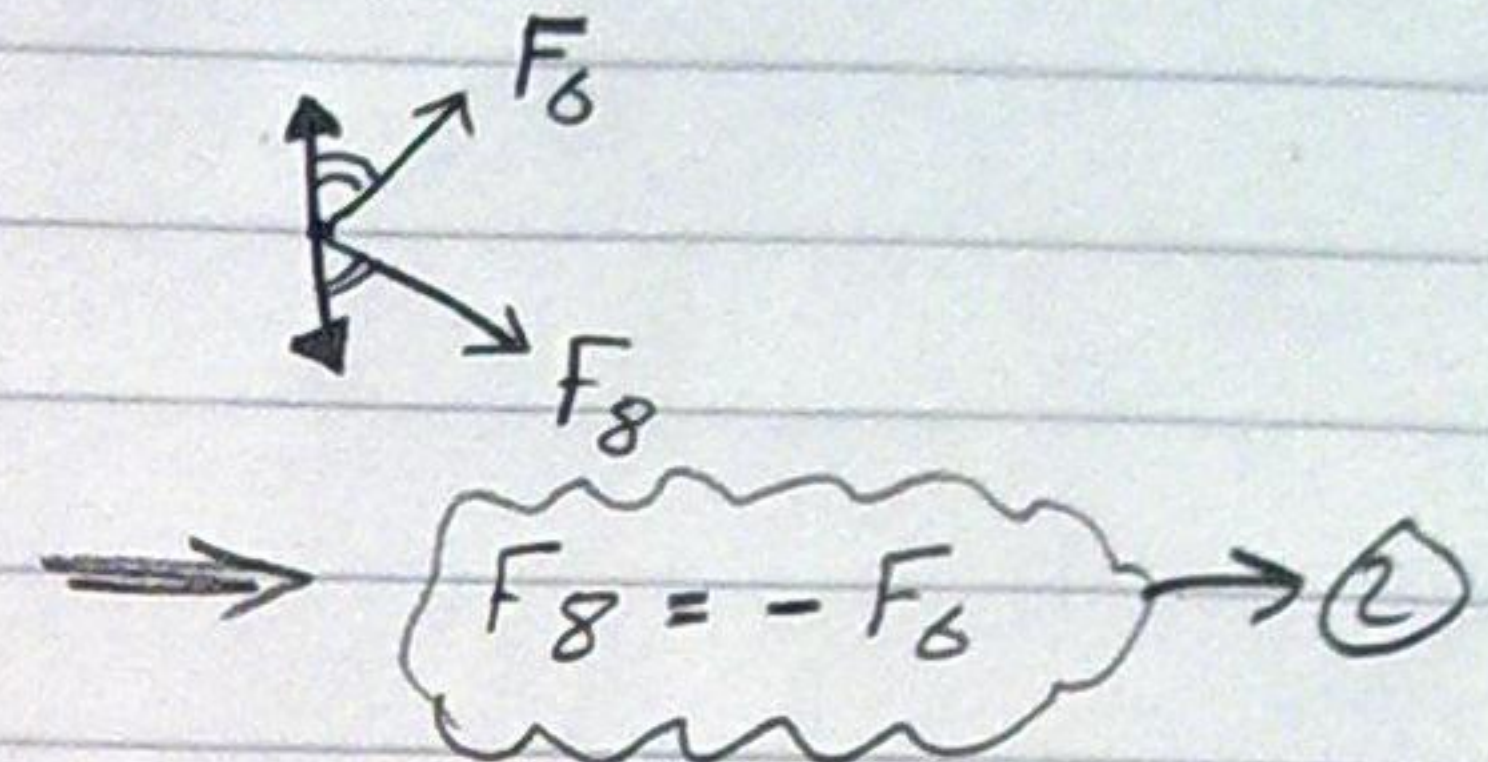 F₆
F₈
⇒ F₈ = - F₆ → ②